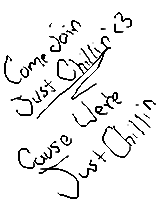 Come Join
Just Chillin <3
Cause Were
Just Chillin